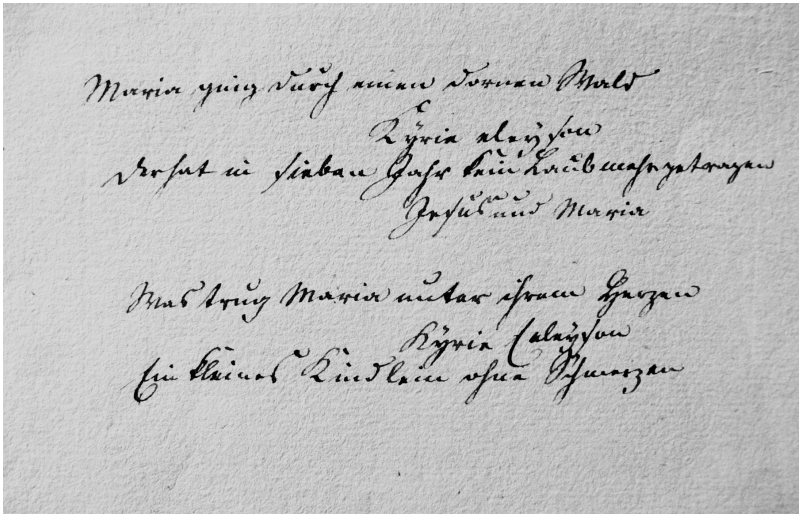 Maria ging durch einen dornen Wald
Kÿrie eleÿson
der hat in sieben Jahr kein Laub mehr getragen
Jesus und Maria
Was trug Maria unter ihrem Herzen
Kÿrie eeleÿson
Ein kleines Kindlein ohne Schmerzen